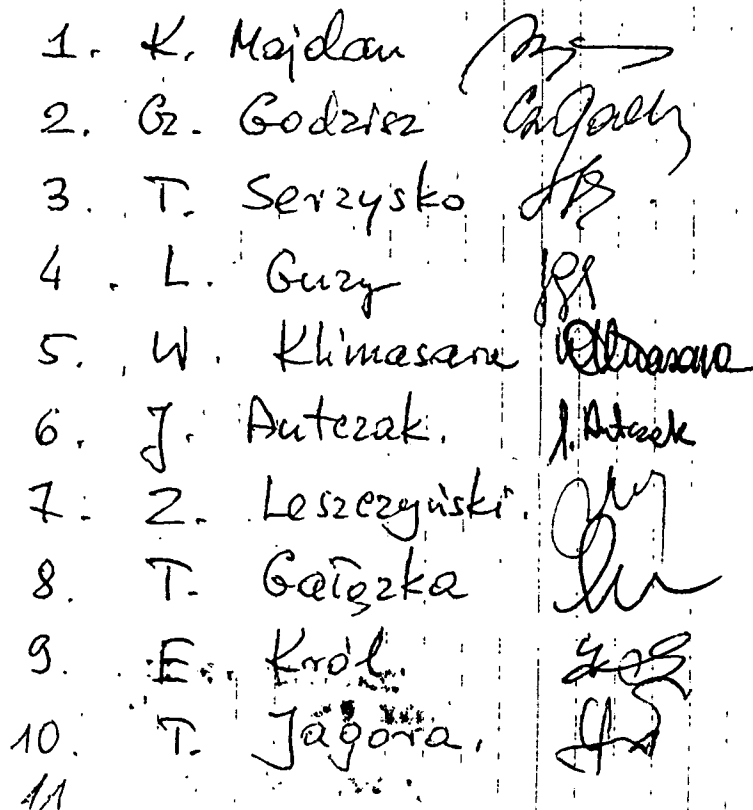 1. K. Majdan
2. G. Godzisz
3. T. Serzysko
4. L. Guzy
5. W. Klimasara Klimasara
6. J. Antczak. J. Antczak
7. Z. Leszczyński.
8. T. Gałązka
9. E. Król.
10. T. Jagora.
11